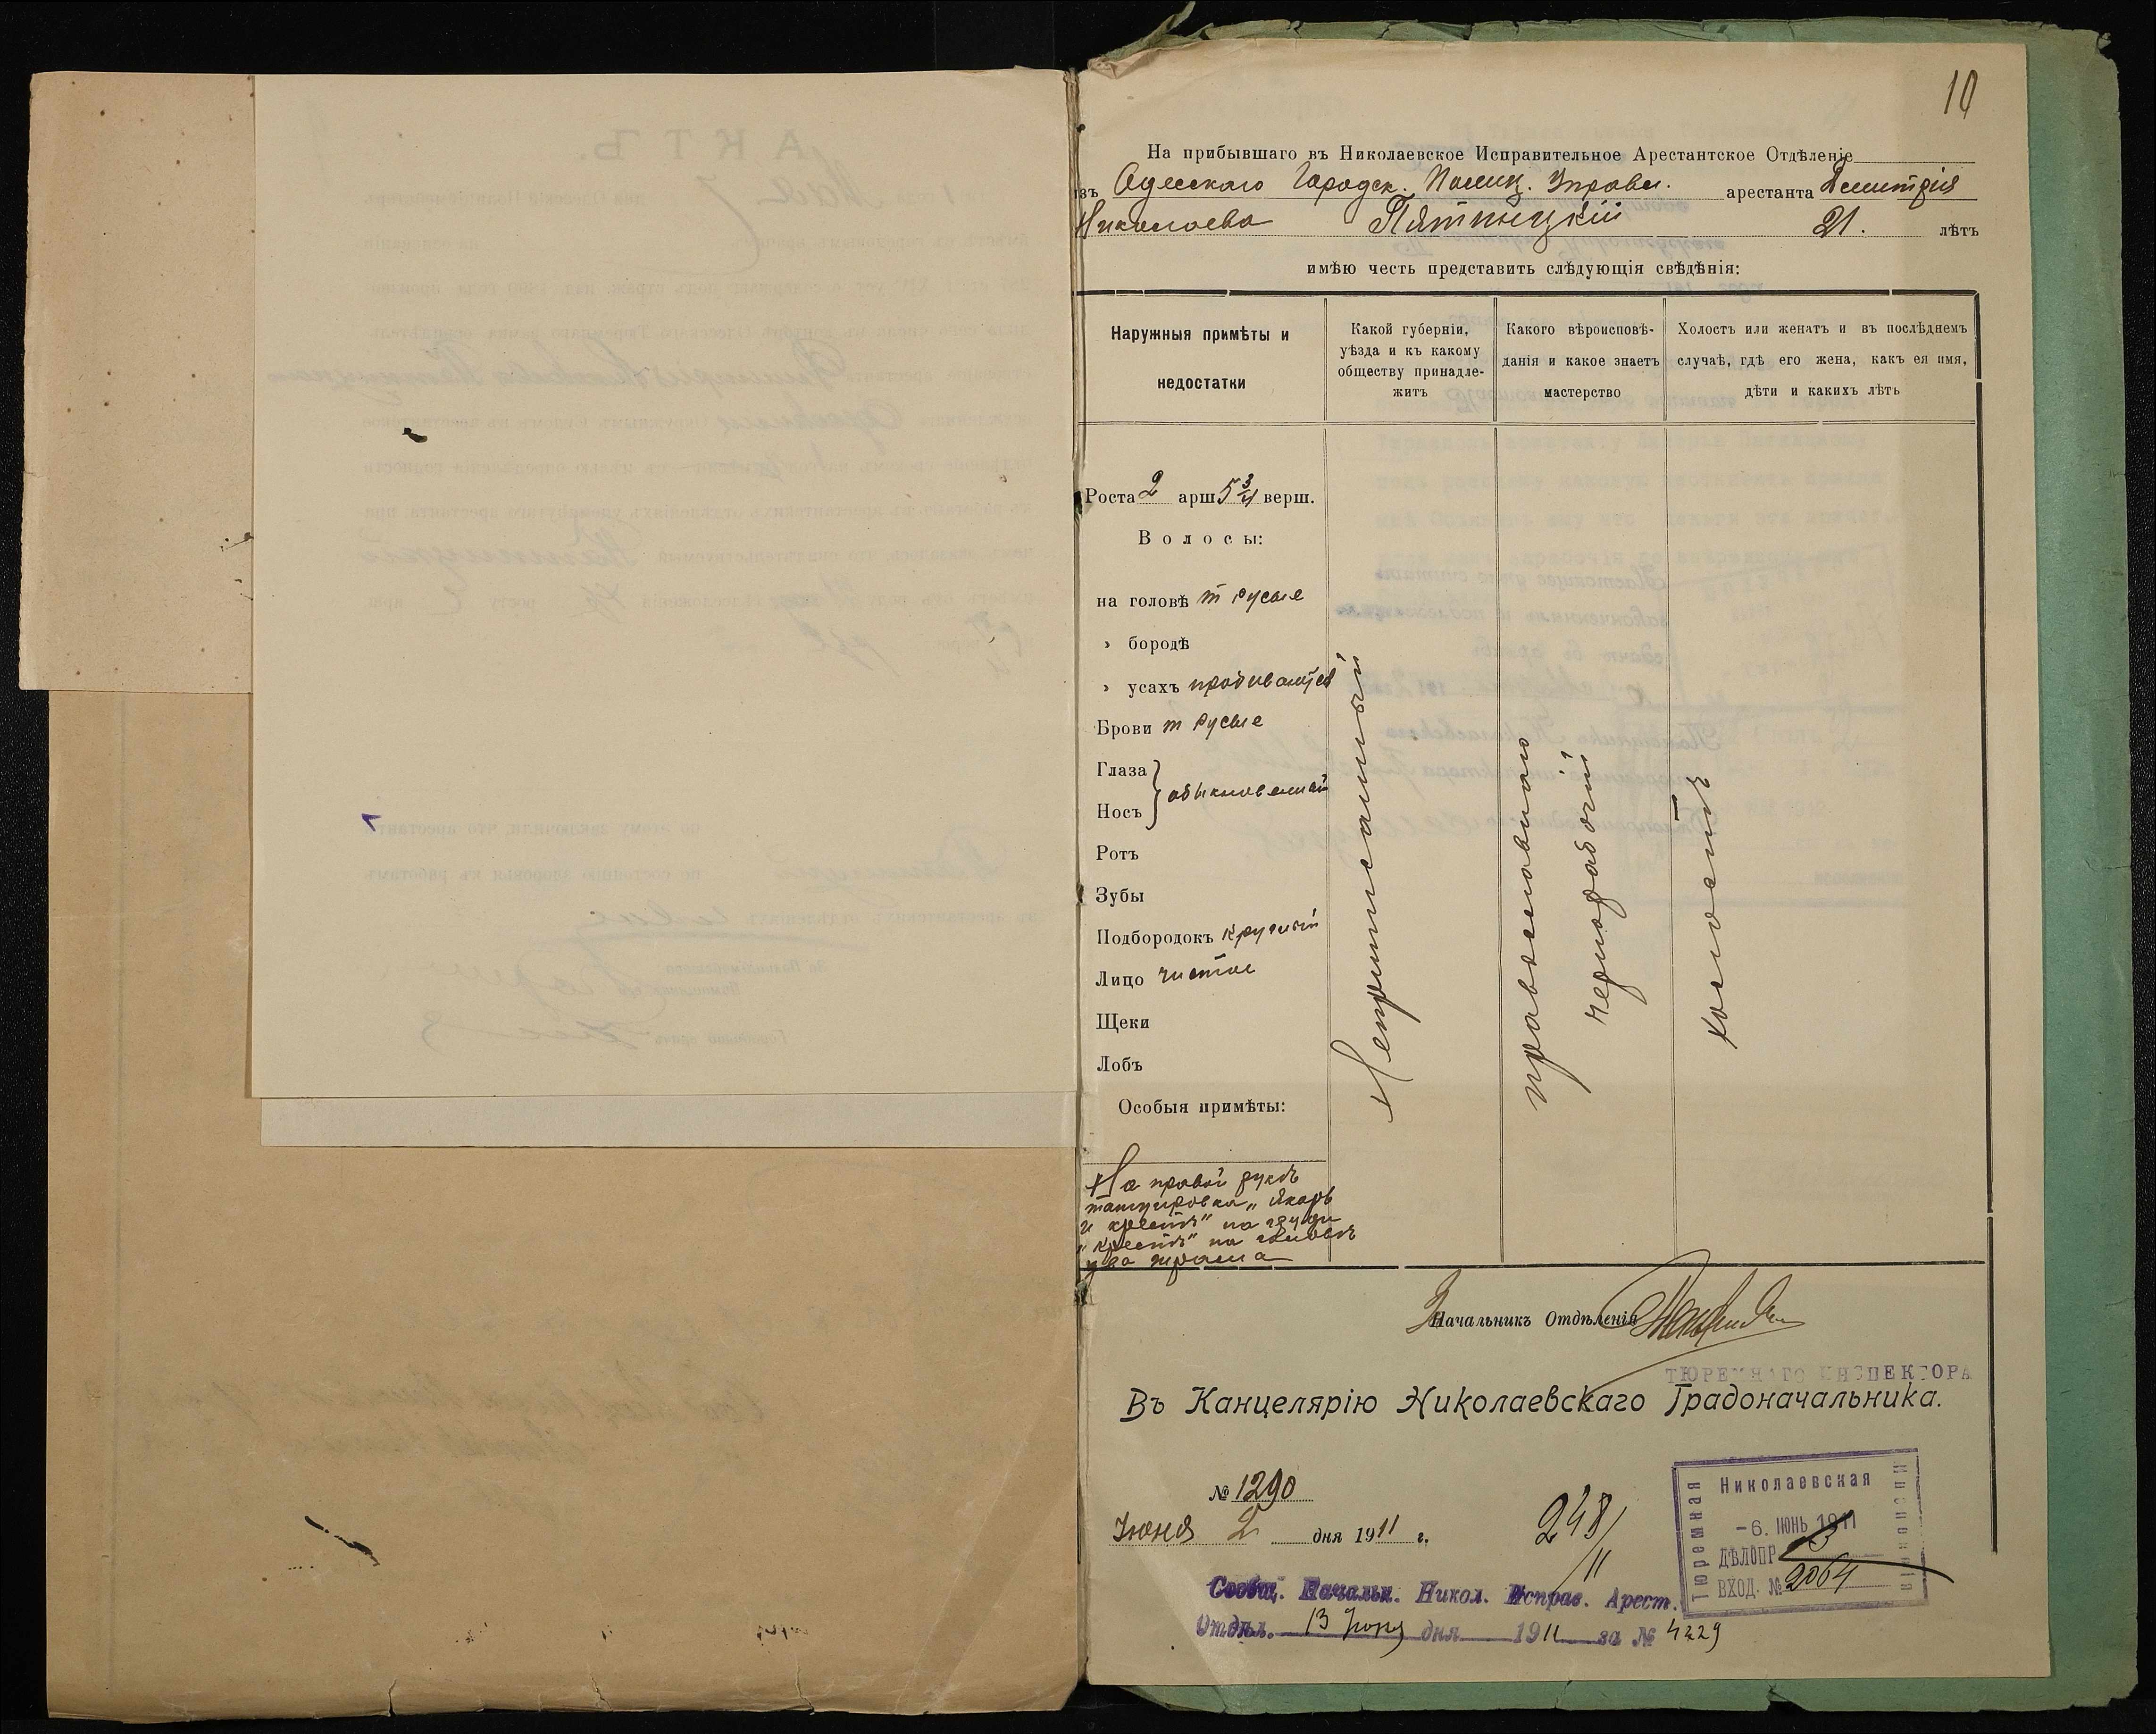 10
На прибывшаго въ Николаевское Исправительное Арестантское Отдѣленіе
изъ Одесскаго Городск. Полиц. Управл. арестанта Дмитрія
Николаева Пятницкій 21. лѣтъ
имѣю честь представить слѣдующія свѣдѣнія:
Наружныя примѣты и
недостатки
Какой губерніи,
уѣзда и къ какому
обществу принадле-
житъ
Какого вѣроисповѣ-
данія и какое знаетъ
мастерство
Холостъ или женатъ и въ послѣднемъ
случаѣ, гдѣ его жена, какъ ея имя,
дѣти и какихъ лѣтъ
Роста 2 арш 5 3/4 верш.
Волосы:
на головѣ т русые
» бородѣ
» усахъ пробиваются
Брови т русые
Глаза
Носъ
обыкновенный
Ротъ
Зубы
Подбородокъ круглый
Лицо чистое
Щеки
Лобъ
Особыя примѣты:
На правой рукѣ
татуировка „Якорь
и крестъ" на груди
„крестъ" на головѣ
два шрама
Неприписанный
православнаго
чернорабочій
холостъ
Начальникъ Отдѣленія
ТЮРЕМНАГО ИНСПЕКТОРА
Въ Канцелярію Николаевскаго Градоначальника.
№ 1290
Июня 2 дня 1911 г.
248/11
Николаевская
Тюремная
Инспекція
-6. ІЮНЬ 1911
ДѢЛОПР. 3
ВХОД. № 2064
Сообщ. Начальн. Никол. Исправ. Арест.
Отдѣл. 13 Июня дня 1911 за № 4229